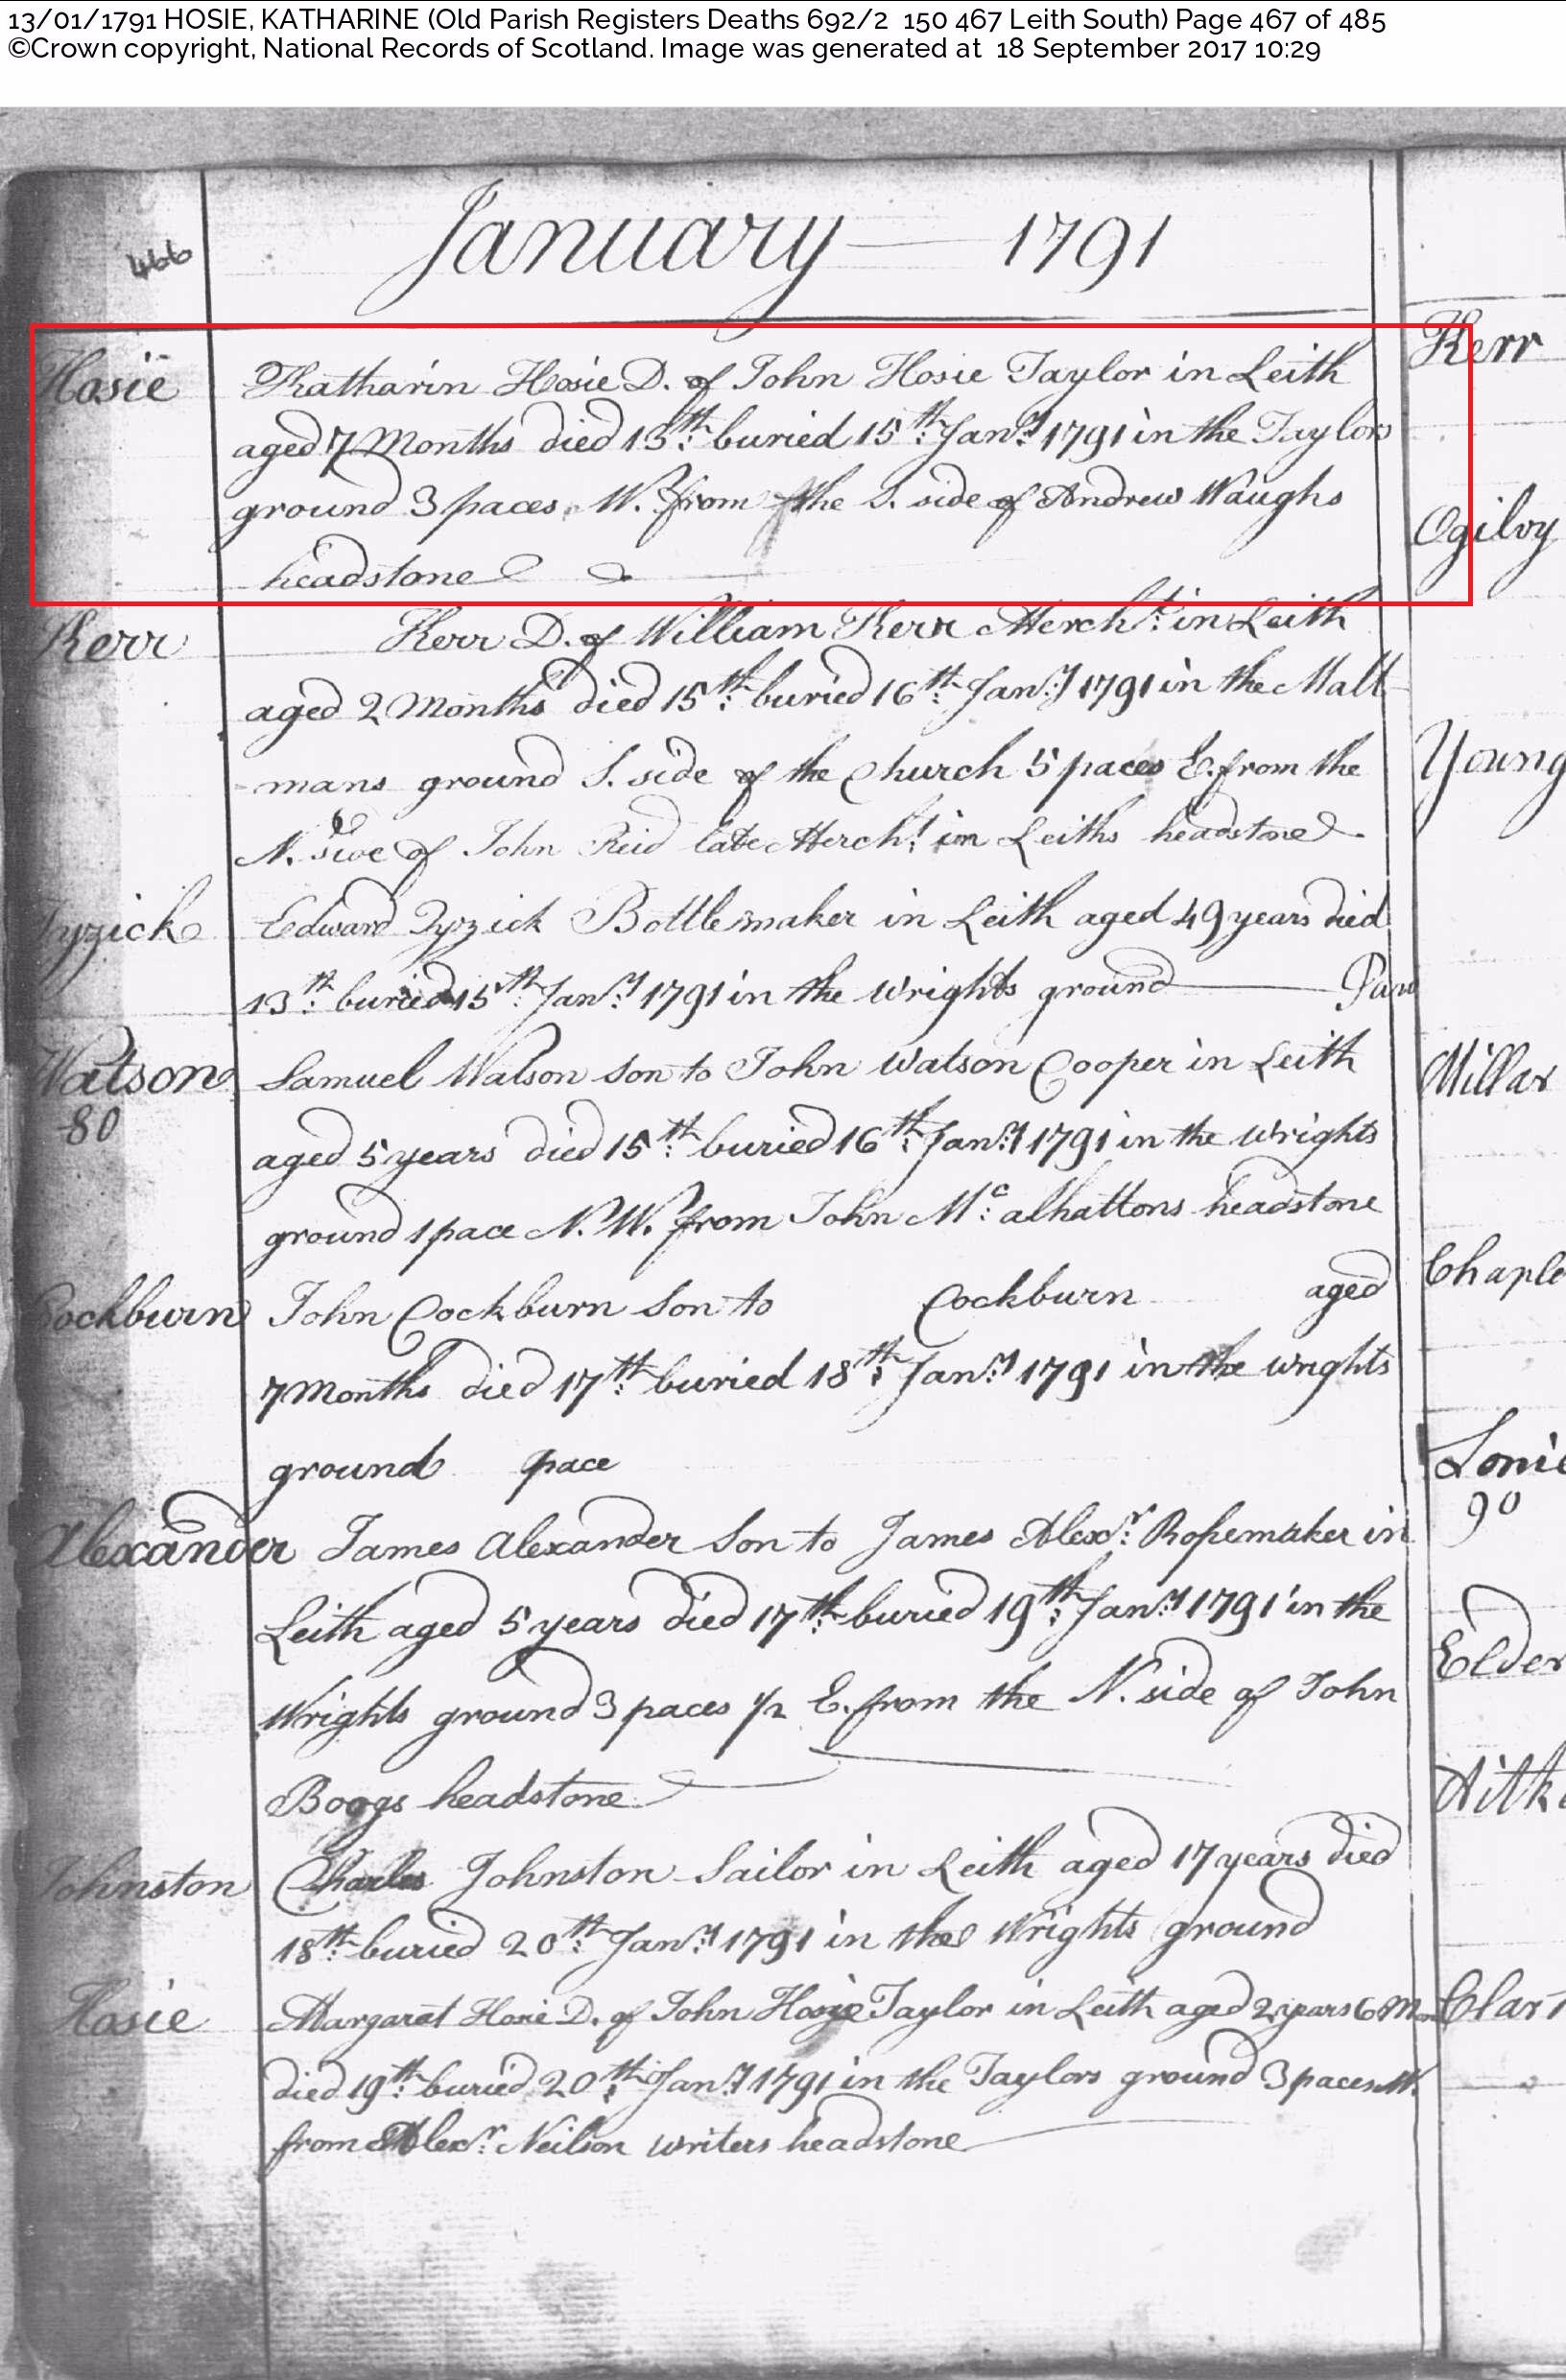 13/01/1791 HOSIE, KATHARINE (Old Parish Registers Deaths 692/2 150 467 Leith South) Page 467 of 485
©Crown copyright, National Records of Scotland. Image was generated at 18 September 2017 10:29
466
January 1791
Hosie
Katharin Hosie D. of John Hosie Taylor in Leith
aged 7 Months died 13th buried 15th Jany 1791 in the Taylors
ground 3 paces W. from the S. side of Andrew Waughs
headstone
Kerr
Kerr D. of William Kerr Mercht in Leith
aged 2 Months died 15th buried 16th Jany 1791 in the Malt
-mans ground S. side of the Church 5 paces E. from the
N. side of John Reid late Mercht in Leiths headstone
Tyzick
Edward Tyzick Bottlemaker in Leith aged 49 years died
13th buried 15th Jany 1791 in the Wrights ground
Watson
80
Samuel Watson Son to John Watson Cooper in Leith
aged 5 years died 15th buried 16th Jany 1791 in the Wrights
ground 1 pace N. W. from John Mc alhattons headstone
Cockburn
John Cockburn Son to Cockburn aged
7 Months died 17th buried 18th Jany 1791 in the Wrights
ground pace
Alexander
James Alexander Son to James Alexr Ropemaker in
Leith aged 5 years died 17th buried 19th Jany 1791 in the
Wrights ground 3 paces 1/2 E. from the N. side of John
Boogs headstone
Johnston
Charles Johnston Sailor in Leith aged 17 years died
18th buried 20th Jany 1791 in the Wrights ground
Hosie
Margarat Hosie D. of John Hosie Taylor in Leith aged 2 years 6 M
died 19th buried 20th Jany 1791 in the Taylors ground 3 paces W.
from Alexr Neilson writers headstone
Kerr
Ogilvy
Young
Millar
Chapl
Loni
90
Elder
Aitk
Clark